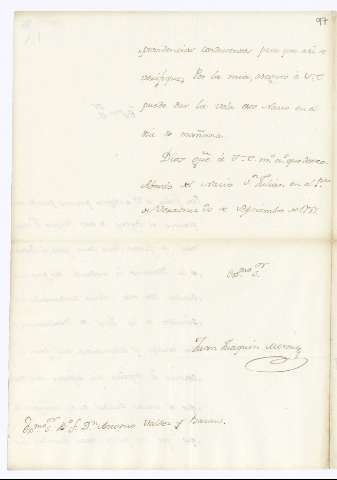 97
providencias conducentes para que asi se
verifique. Por la mia, aseguro à V.E.
puedo dar la vela en el
dia de mañana.
Dios gue. à V.E. ms. as. que deseo.
Abordo del Navio Sn. Julian, en el Pto.
de Veracruz 20 de Septiembre de
Exmo. Sr.
Juan Joaquin Moreno
Exmo. Sr. Dn. Antonio Valdes y Bazan.